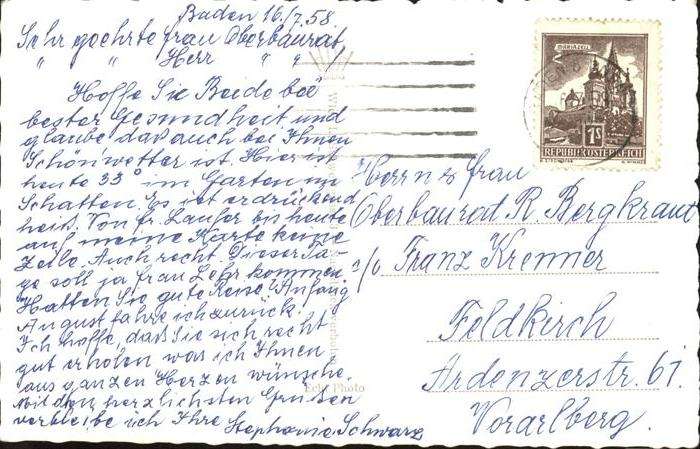 Baden 16./7.58.
Sehr geehrte Frau Oberbaurat
" " Herr " " !
Hoffe Sie Beide bei
bester Gesundheit und
glaube, daß auch bei Ihnen
Schönwetter ist. Hier ist
heute 33° im Garten im
Schatten. Es ist erdrückend
heiß. Von Fr. Lauser bis heute
auf meine Karte keine
Zeile. Auch recht. Dieser Ta-
ge soll ja Frau Lehr kommen.
Hatten Sie gute Reise? Anfang
August fahre ich zurück.
Ich hoffe, daß Sie sich recht
gut erholen was ich Ihnen
aus ganzen Herzen wünsche.
Mit den herzlichsten Grüßen
verbleibe ich Ihre Stephanie Schwarz
MARIAZELL
1S
REPUBLIK ÖSTERREICH
Herrn u. Frau
Oberbaurad. R. Bergkraut
c/o Franz Krenner
Feldkirch
Ardenzerstr. 61.
Vorarlberg.
Echt Photo